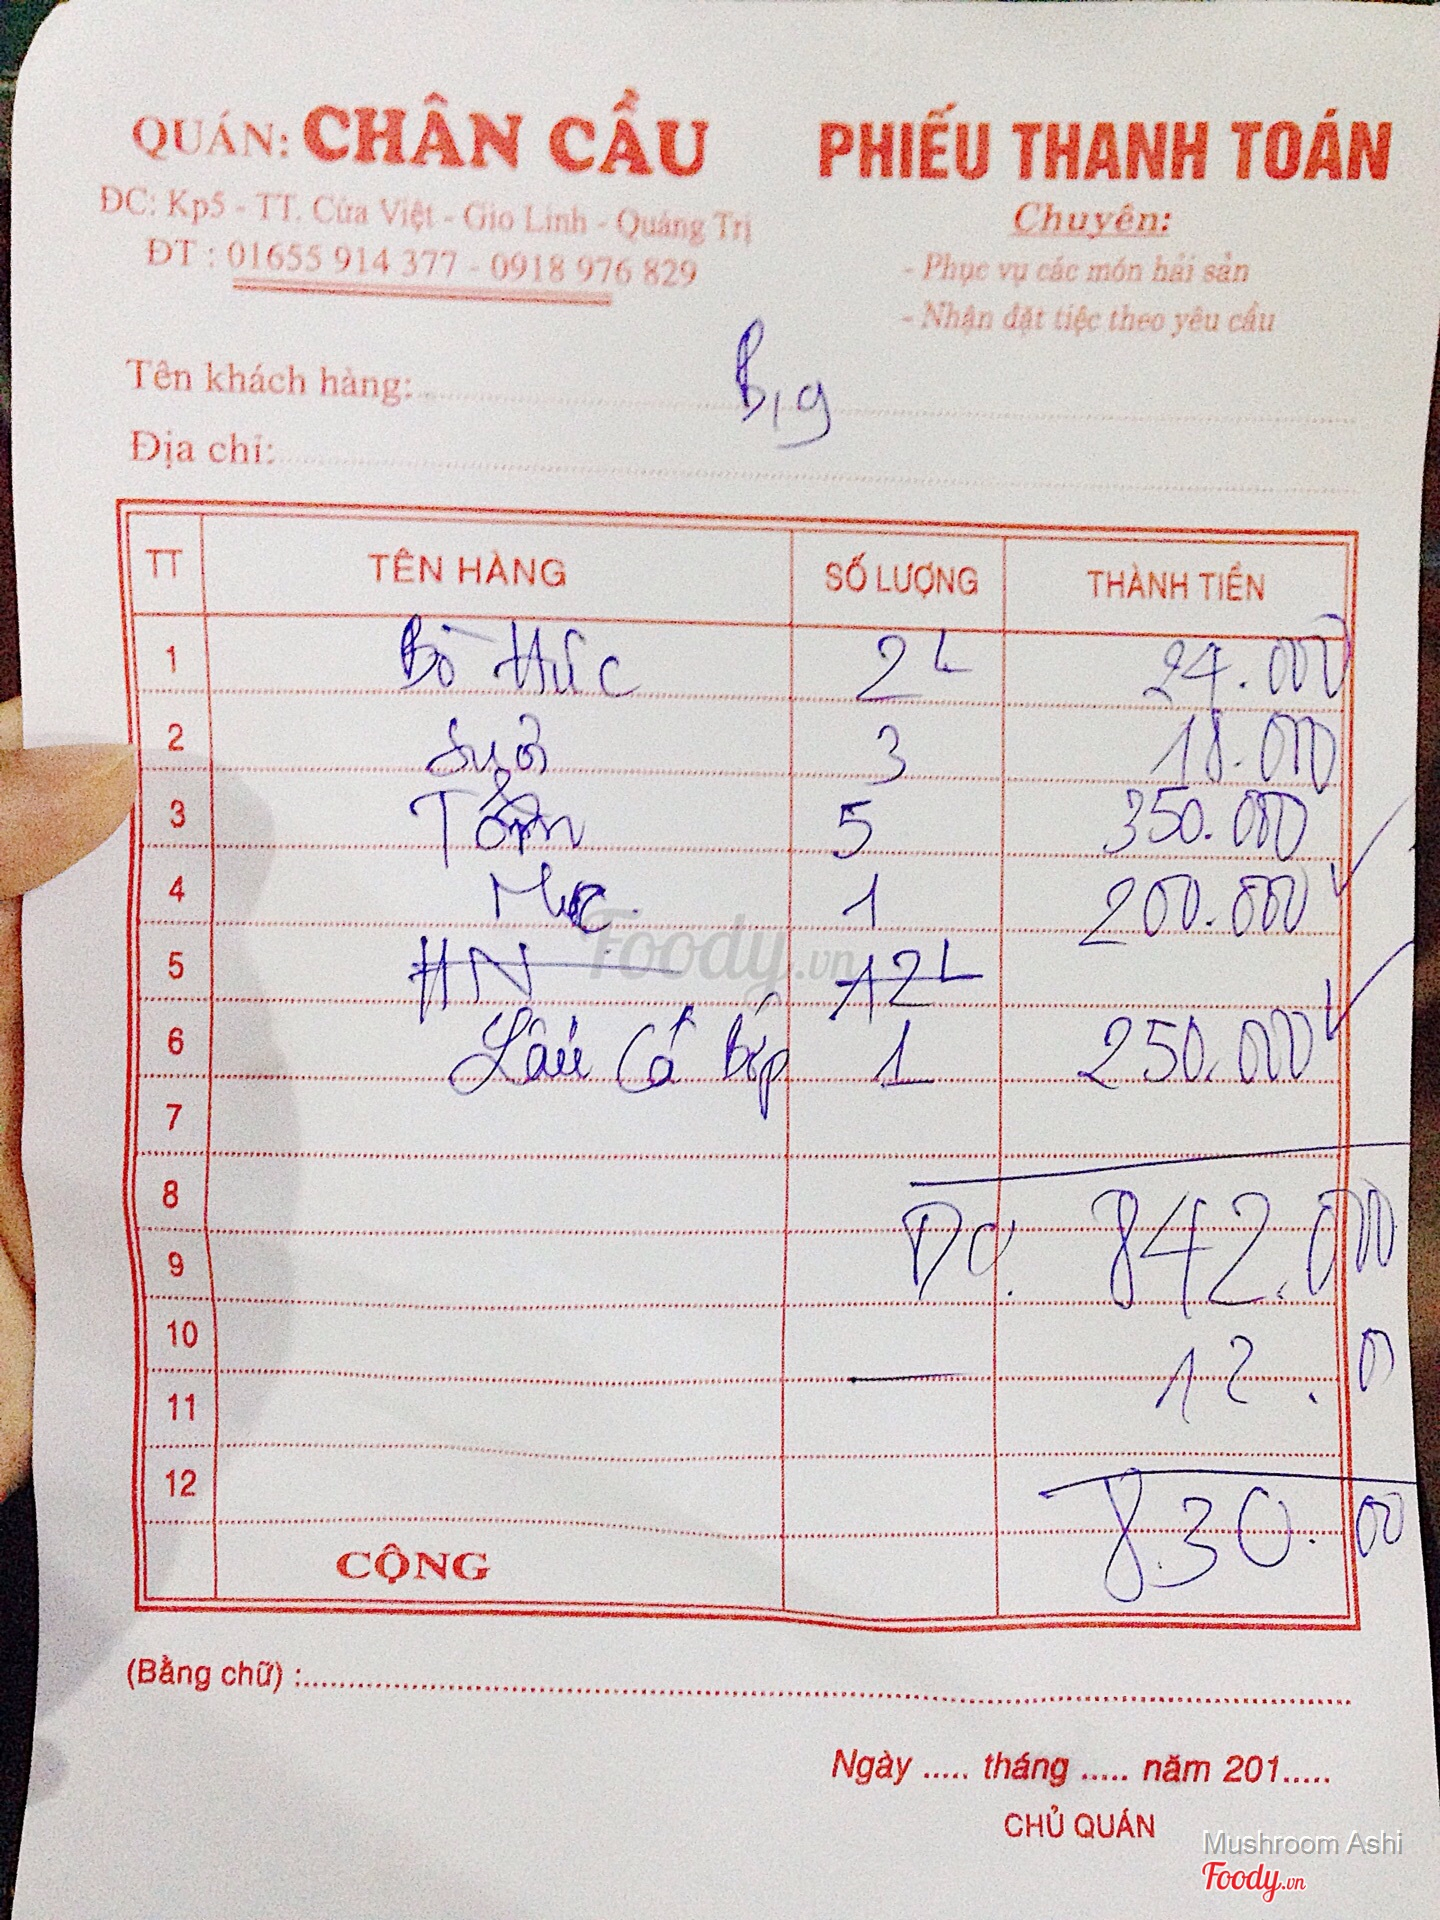 QUÁN: CHÂN CẦU
ĐC: Kp5 - TT. Cửa Việt - Gio Linh - Quảng Trị
ĐT : 01655 914 377 - 0918 976 829
PHIẾU THANH TOÁN
Chuyên:
- Phục vụ các món hải sản
- Nhận đặt tiệc theo yêu cầu
Tên khách hàng: Big
Địa chỉ:
TT TÊN HÀNG SỐ LƯỢNG THÀNH TIỀN
1 Bò Húc 2L 24.000
2 3 18.000
3 Tôm 5 350.000
4 Mực 1 200.000
5 HN 12L
6 Lẩu Cá bớp 1 250.000
7
8
842.000
9
10
12.0
11
12
830.00
CỘNG
(Bằng chữ) :
Ngày ..... tháng ..... năm 201.....
CHỦ QUÁN
Foody.vn
Mushroom Ashi
Foody.vn